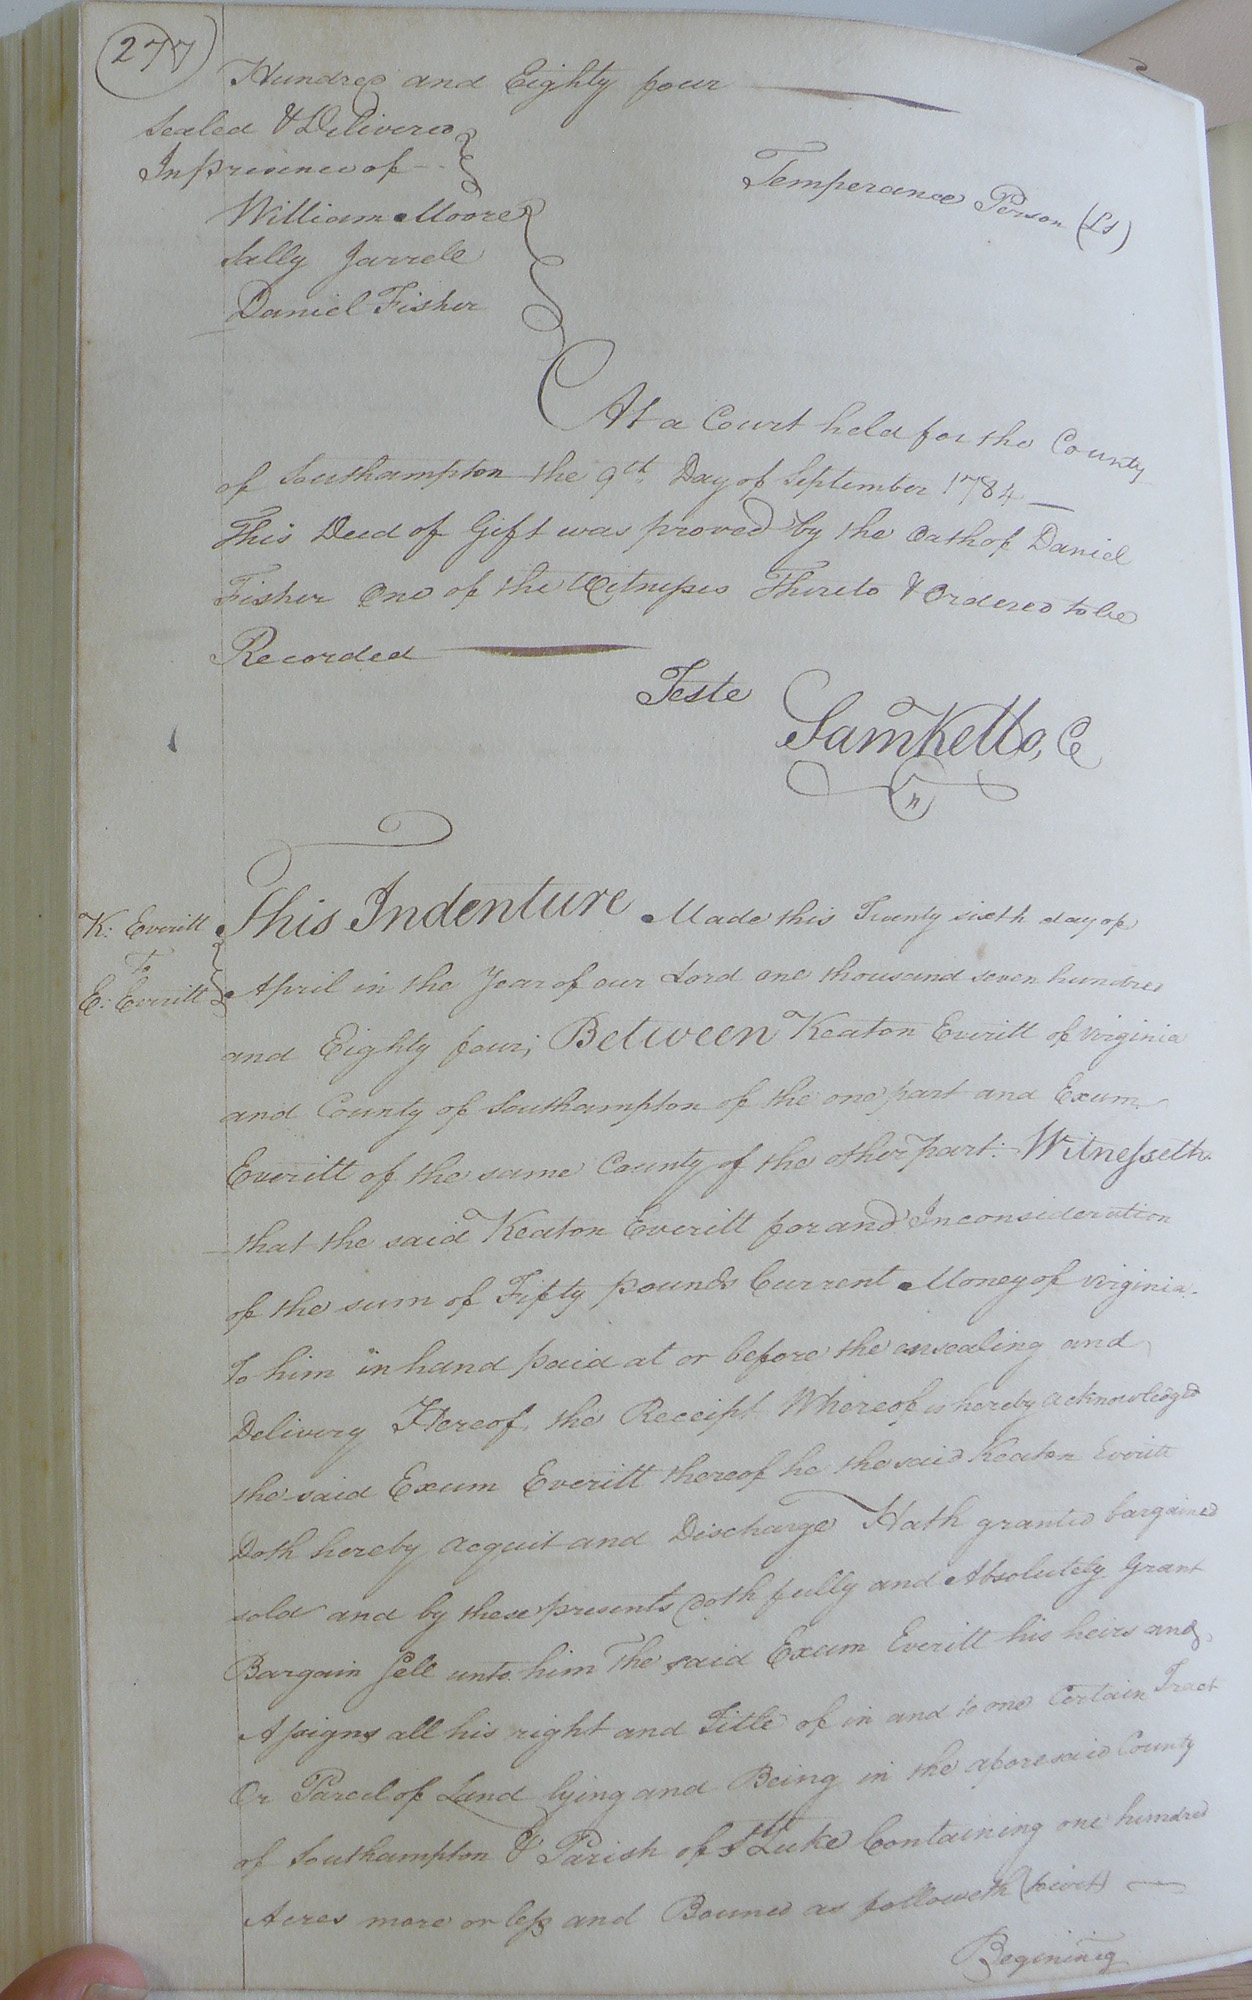 277
Hundred and Eighty four
Sealed & Delivered
In presence of
Temperance Person (Ls)
William Moore
Sally Jarrell
Daniel Fisher
At a Court held for the County
of Southampton the 9th Day of September 1784
This Deed of Gift was proved by the Oath of Daniel
Fisher One of the Witnesses Thereto & Ordered to be
Recorded
Teste
Saml Kello, C
K: Everitt
To
E: Everitt
This Indenture Made this Twenty sixth day of
April in the Year of our Lord one thousand seven hundred
and Eighty four; Between Keaton Everitt of Virginia
and County of Southampton of the one part and Exum
Everitt of the same County of the other part: Witnesseth
that the said Keaton Everitt for and In consideration
of the sum of Fifty pounds Current Money of Virginia
to him in hand paid at or before the ensealing and
Delivery Hereof, the Receipt Whereof is hereby acknowledged
the said Exum Everitt thereof he the said Keaton Everitt
Doth hereby acquit and Discharge Hath granted bargained
sold and by these presents doth fully and Absolutely Grant
Bargain Sell unto him The said Exum Everitt his heirs and
Assigns all his right and Title of in and to one Certain Tract
Or Parcel of Land lying and Being in the aforesaid County
of Southampton & Parish of St Luke Containing one hundred
Acres more or less and Bound as followeth (towit)
Begining